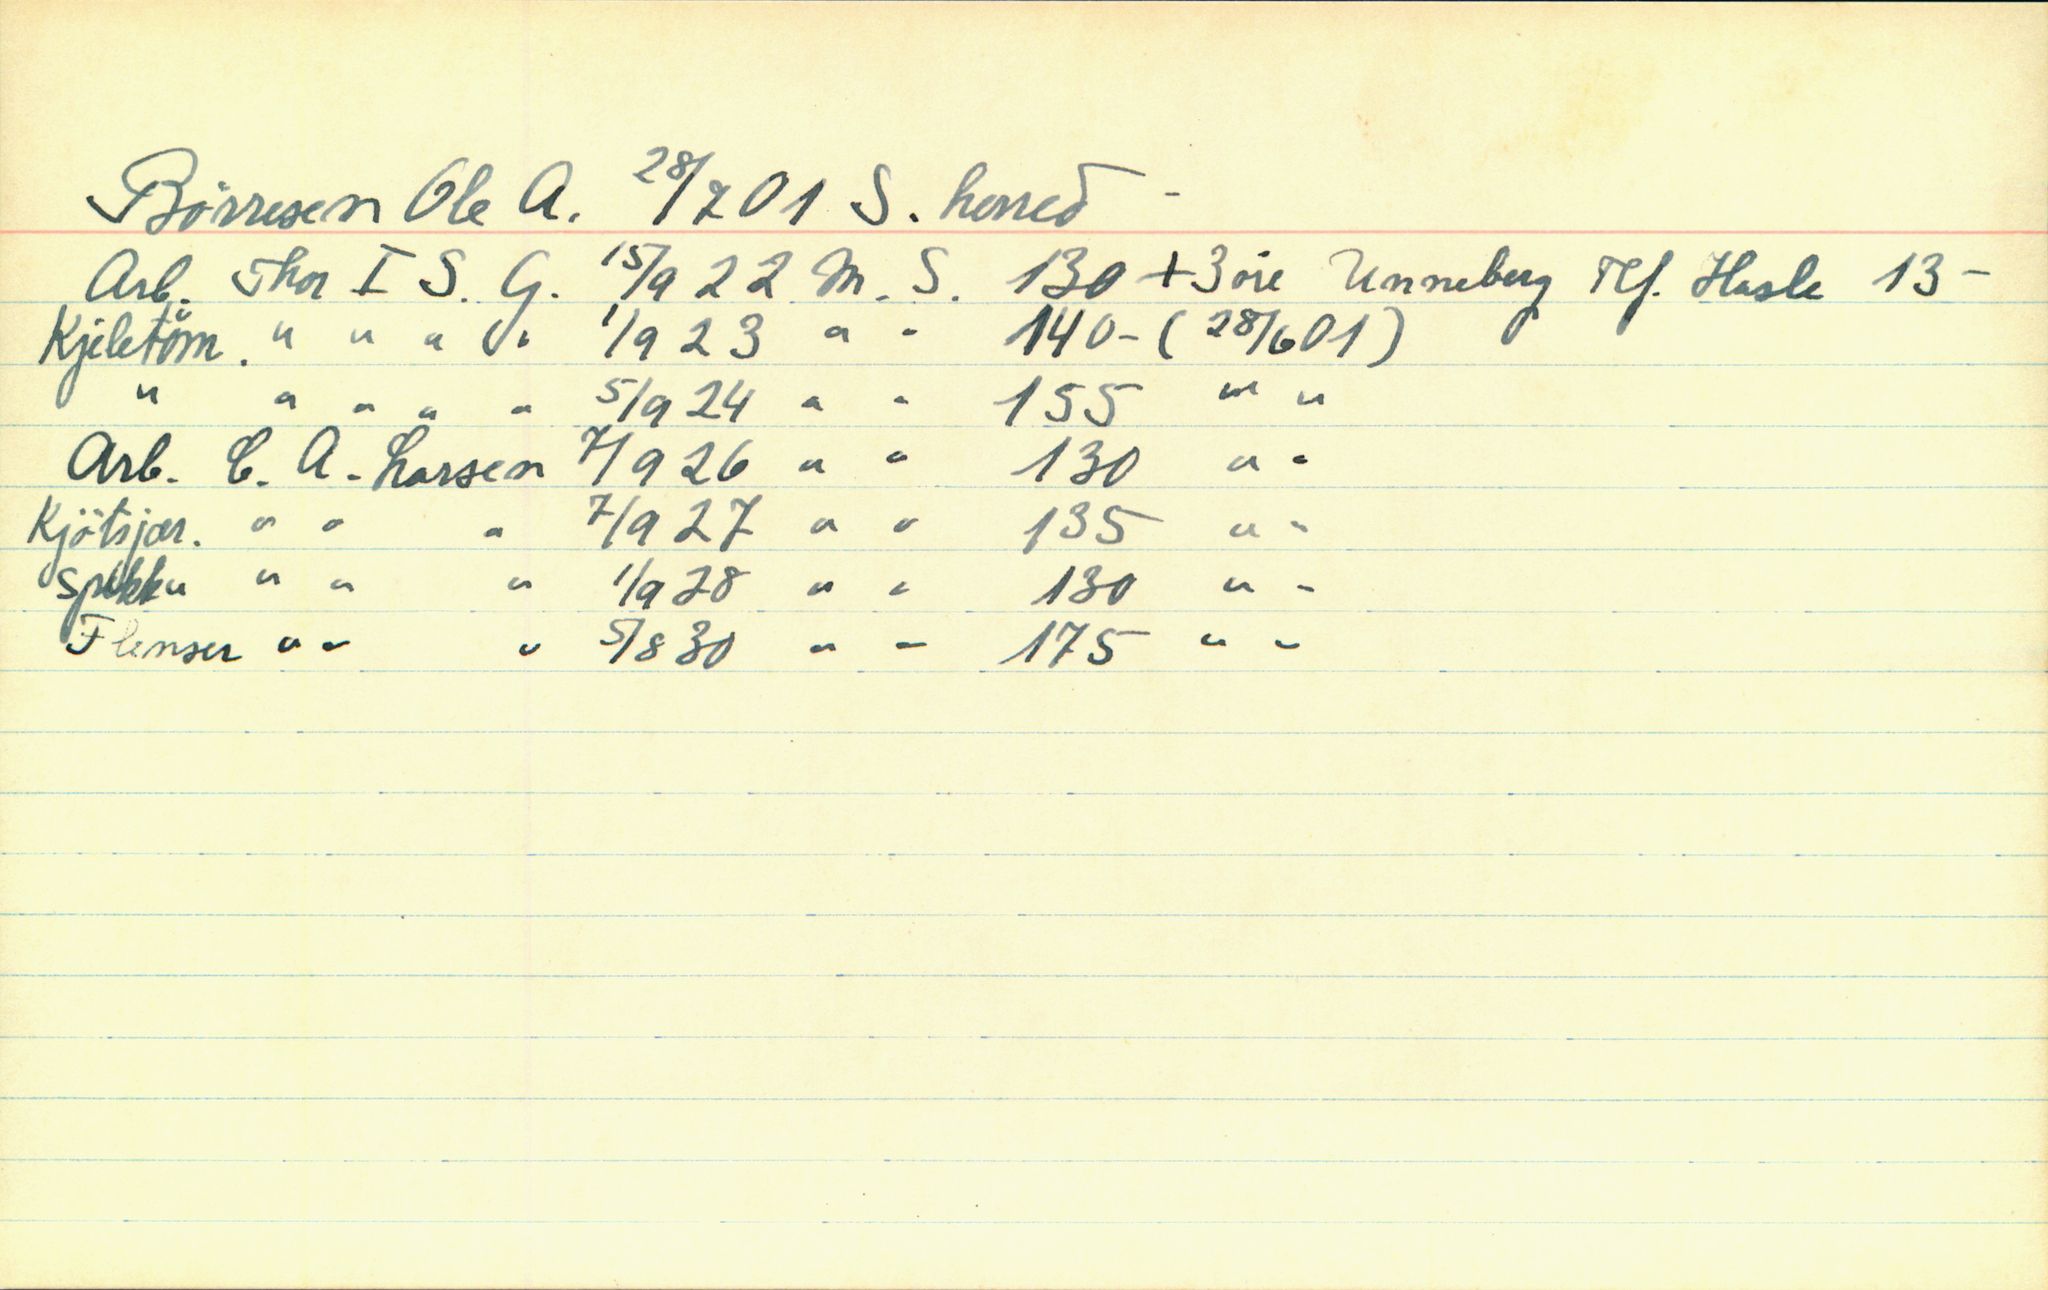 Börresen Ole A. 28/7 01 S. herred -
Arb. Thor I S. G. 15/9 22 M. S. 130 + 3 öre Unneberg Tlf. Hasle 13 -
Kjeletöm. " " " " 1/9 23 " " 140 - (28/6 01)
" " " " " 5/9 24 " " 155 " "
Arb. C. A. Larsen 7/9 26 " " 130 " "
Kjötsjær. " " " 7/9 27 " " 135 " "
Spekku " " " 1/9 28 " " 130 " "
Flenser " " " 5/8 30 " " 175 " "